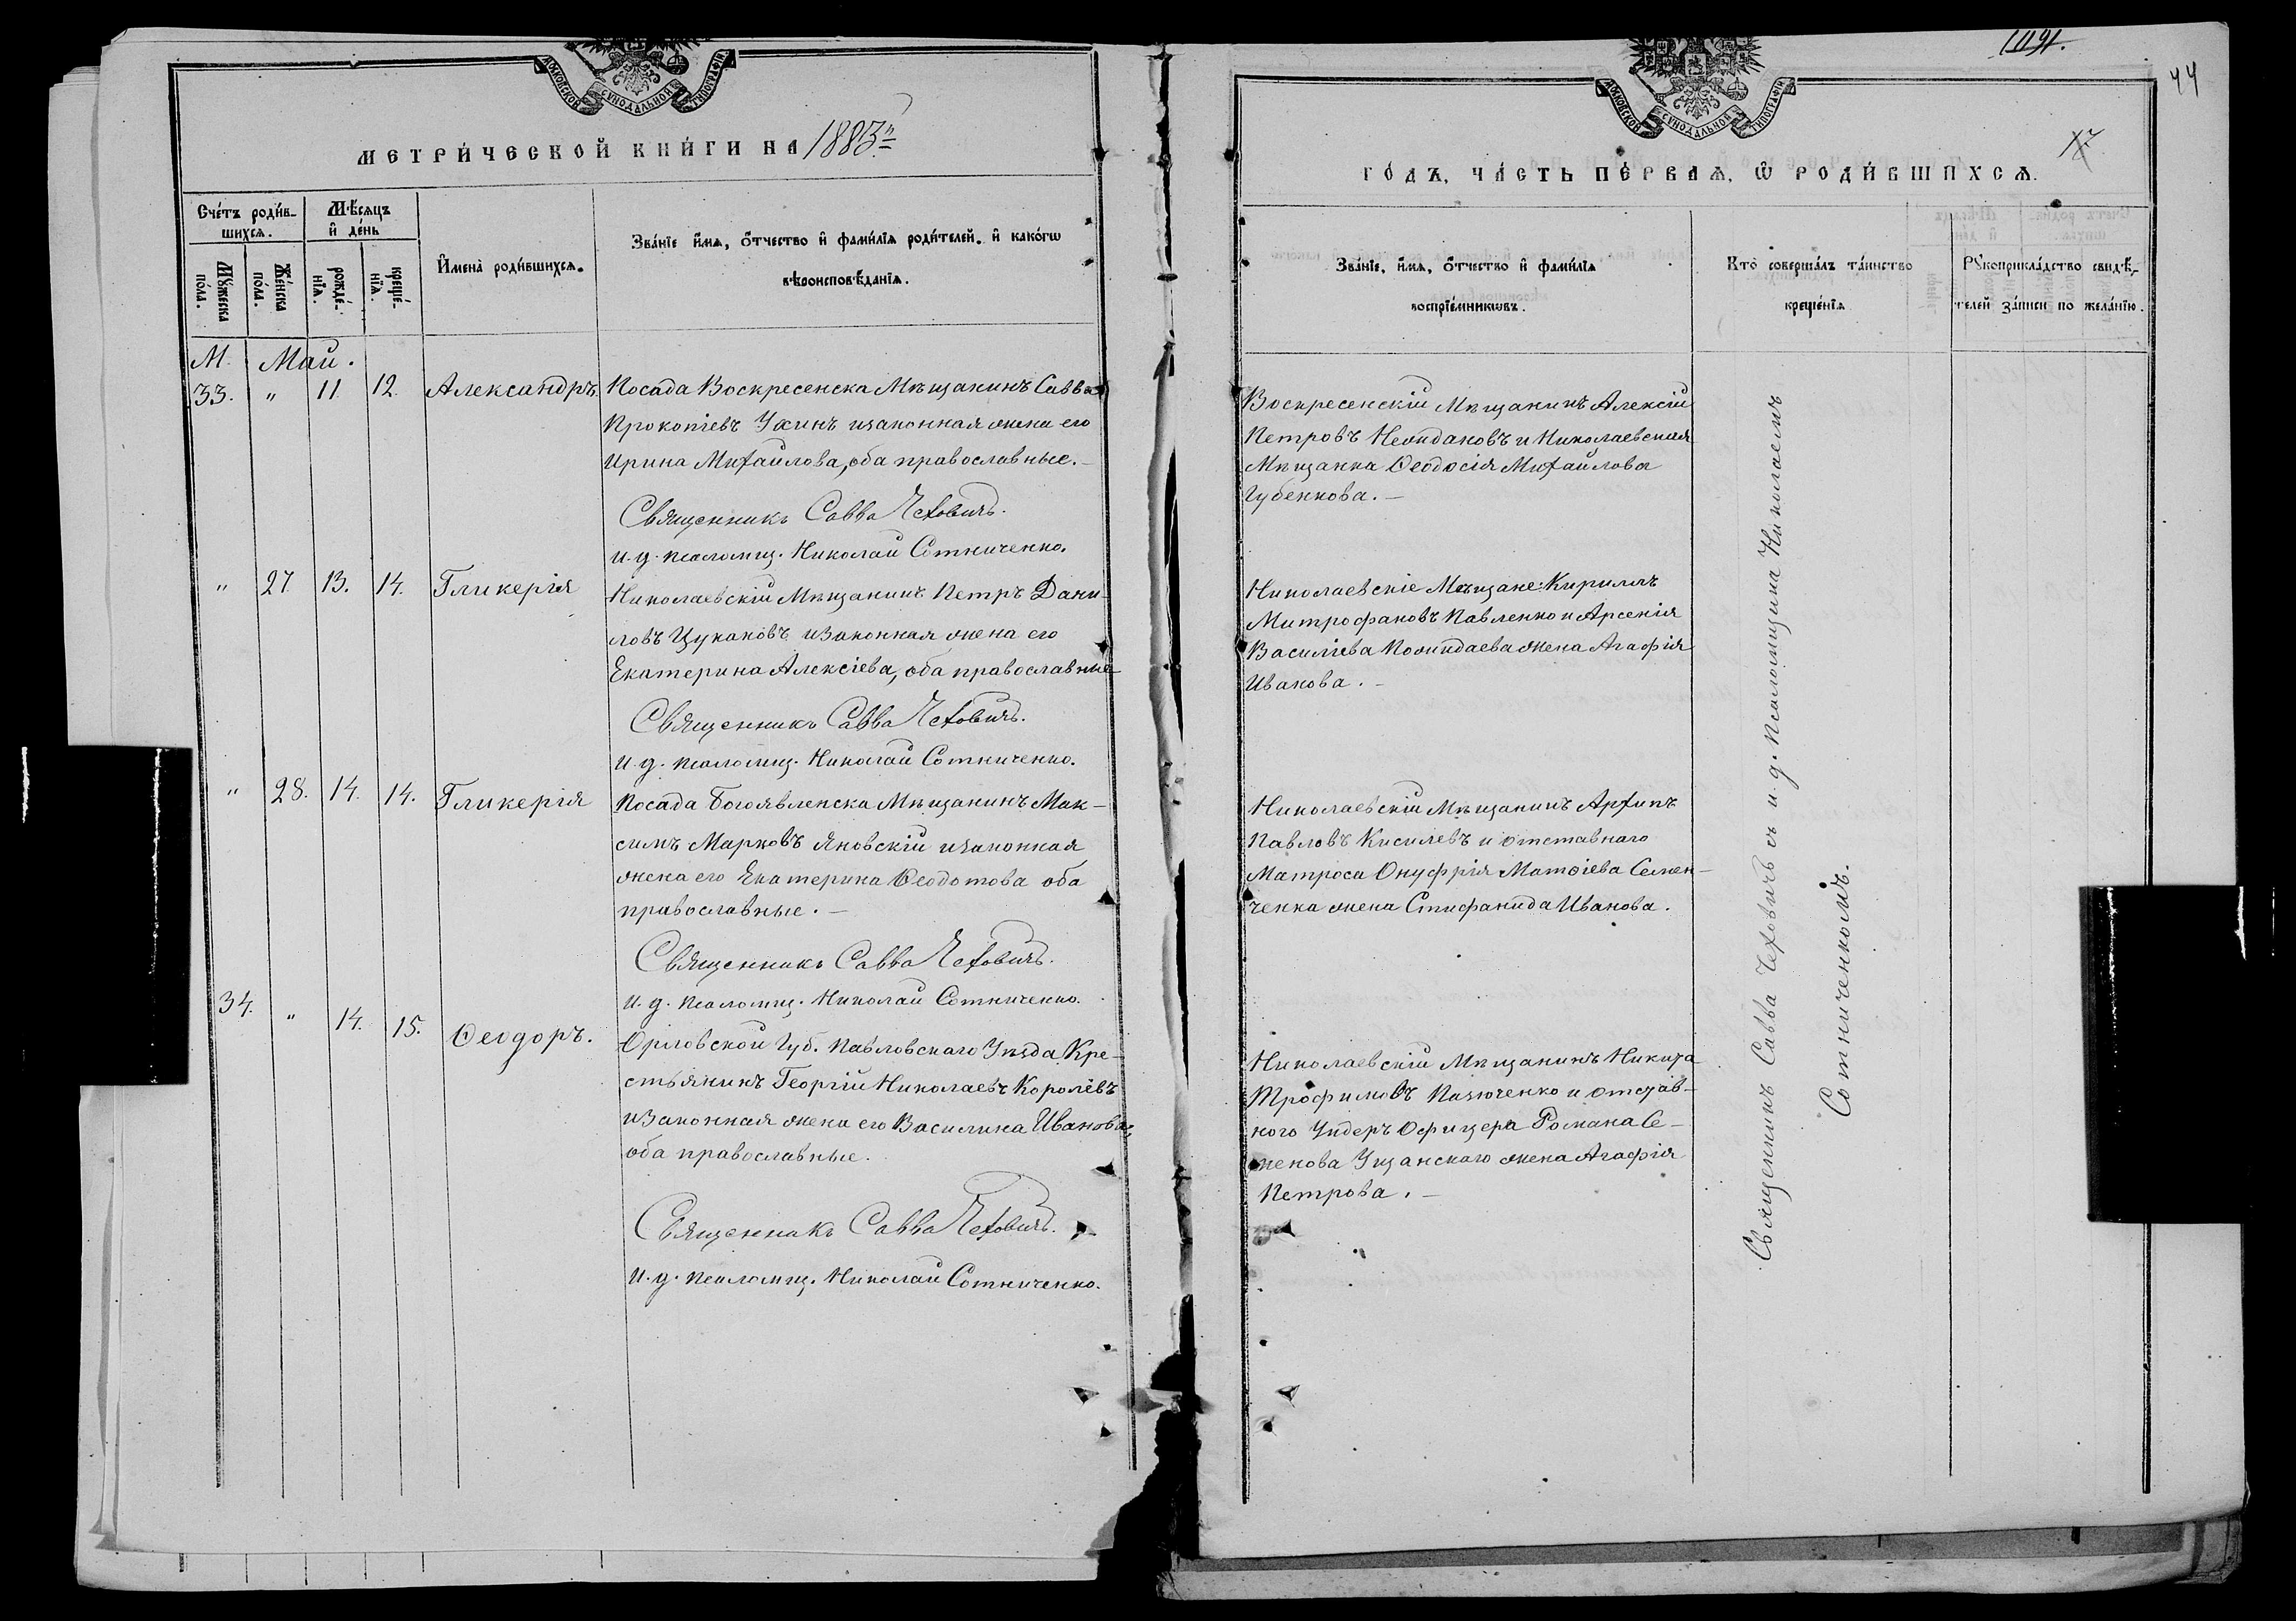 МОСКОВСКОЙ СѴНОДАЛЬНОЙ ТИПОГРАФІИ
МЕТРИ́ЧЕСКОЙ КНИ́ГИ НА 1883 г.
Сче́тъ роди́в-
шихсѧ.
Мѣ́сѧцъ
и҆ де́нь
Мꙋ́жеска
по́ла.
Же́нска
по́ла.
рожде́-
нїѧ.
креще́-
нїѧ.
И҆мена̀ роди́вшихсѧ.
Зва́нїе и҆́мѧ, ѻ҆́тчество и҆ фами́лїѧ роди́телей. и҆ како́гѡ
вѣроисповѣ́данїѧ.
М. Май.
33. " 11. 12. Александръ. Посада Воскресенска Мѣщанинъ Савва
Прокопіевъ Ухинъ и законная жена его
Ирина Михайлова, оба православные. –
Священникъ Савва Чеховичъ.
И. д. псаломщ. Николай Сотниченко.
" 27. 13. 14. Гликерія Николаевскій Мѣщанинъ Петръ Дани-
ловъ Цукановъ и законная жена его
Екатерина Алексіева, оба православные
Священникъ Савва Чеховичъ.
И. д. псаломщ. Николай Сотниченко.
" 28. 14. 14. Гликерія Посада Богоявленска Мѣщанинъ Мак-
симъ Марковъ Яновскій и законная
жена его Екатерина Ѳеодотова оба
православные. –
Священникъ Савва Чеховичъ.
И. д. псаломщ. Николай Сотниченко.
34. " 14. 15. Ѳеодоръ. Орловской Губ. Павловскаго Уѣзда Кре-
стьянинъ Георгій Николаевъ Королёвъ
и законная жена его Василина Иванова,
оба православные.
Священникъ Савва Чеховичъ.
И. д. псаломщ. Николай Сотниченко.
44
17
МОСКОВСКОЙ СѴНОДАЛЬНОЙ ТИПОГРАФІИ
ГО́ДЪ, ЧА́СТЬ ПЕ́РВАѦ, Ѡ҆ РОДИ́ВШИХСѦ.
Зва́нїе, и҆́мѧ, ѻ҆́тчество и҆ фами́лїѧ
воспрїе́мникѡвъ.
Кто̀ соверша́лъ та́инство
креще́нїѧ
Рꙋкоприкла́дство свидѣ́-
телей за́писи по жела́нїю.
Воскресенскій Мѣщанинъ Алексій
Петровъ и Николаевская
Мѣщанка Ѳеодосія Михайлова
Губенкова. –
Николаевскіе Мѣщане: Кириллъ
Митрофановъ Павленко и Арсенія
Василіева жена Агафія
Иванова. –
Николаевскій Мѣщанинъ Архипъ
Павловъ Кисилевъ и отставнаго
Матроса Онуфрія Матѳіева Семен-
ченка жена Стифанида Иванова.
Николаевскій Мѣщанинъ Никита
Трофимовъ Пазюченко и отстав-
ного Ундеръ Офицера Романа Се-
менова Ущанскаго жена Агафія
Петрова. –
Священникъ Савва Чеховичъ съ и. д. Псаломщика Николаемъ
Сотниченкомъ.